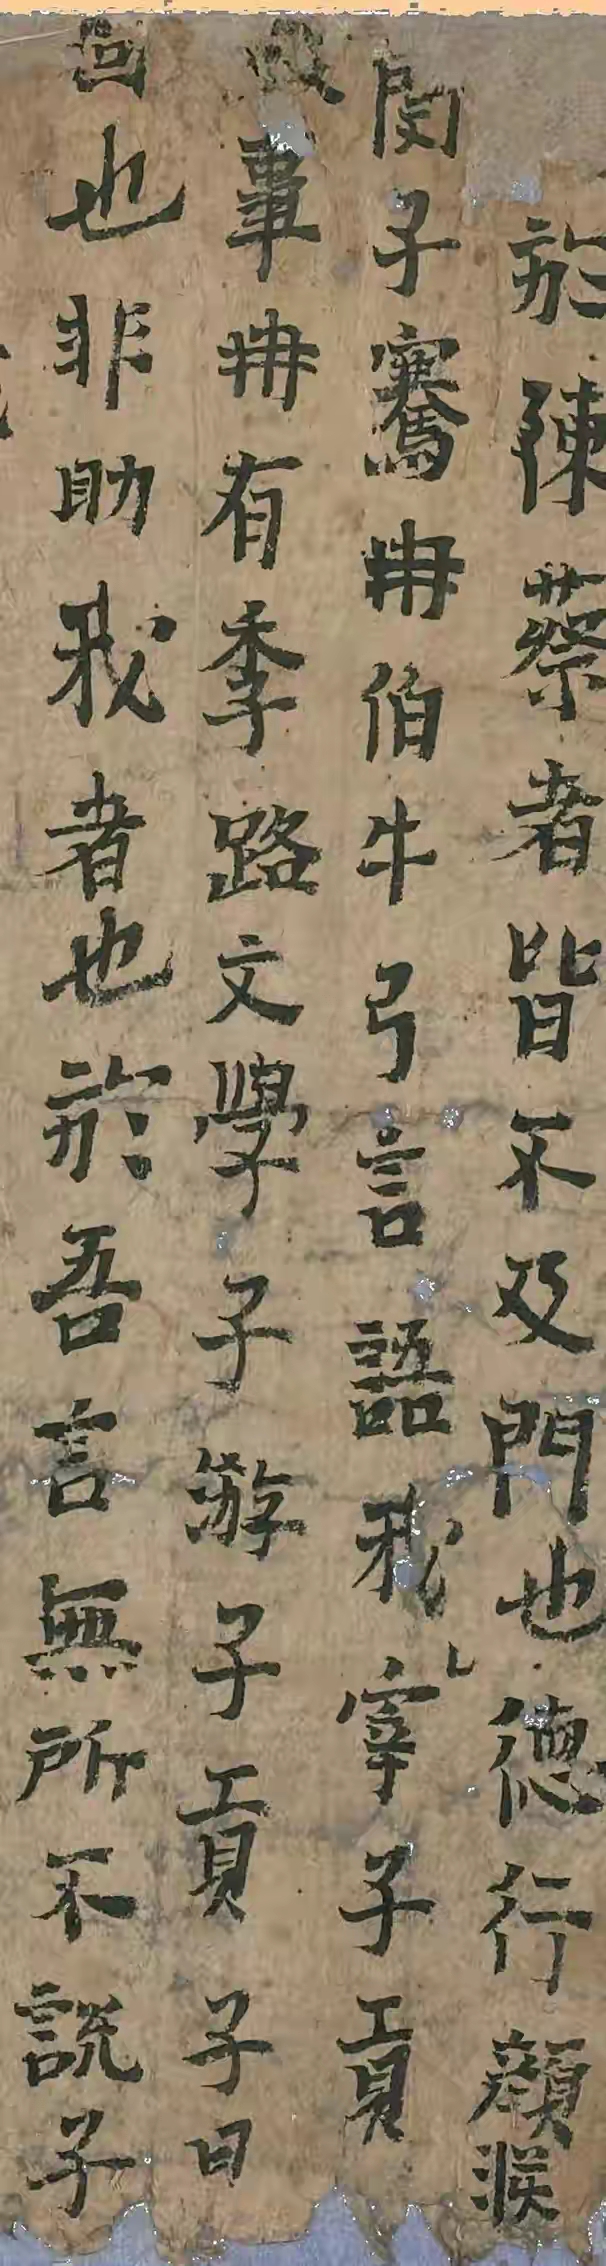 於陳蔡者皆不及門也德行顏淵
閔子騫冉伯牛弓言語我宰子貢
政事冉有季路文學子游子貢子曰
回也非助我者也於吾言無所不説子